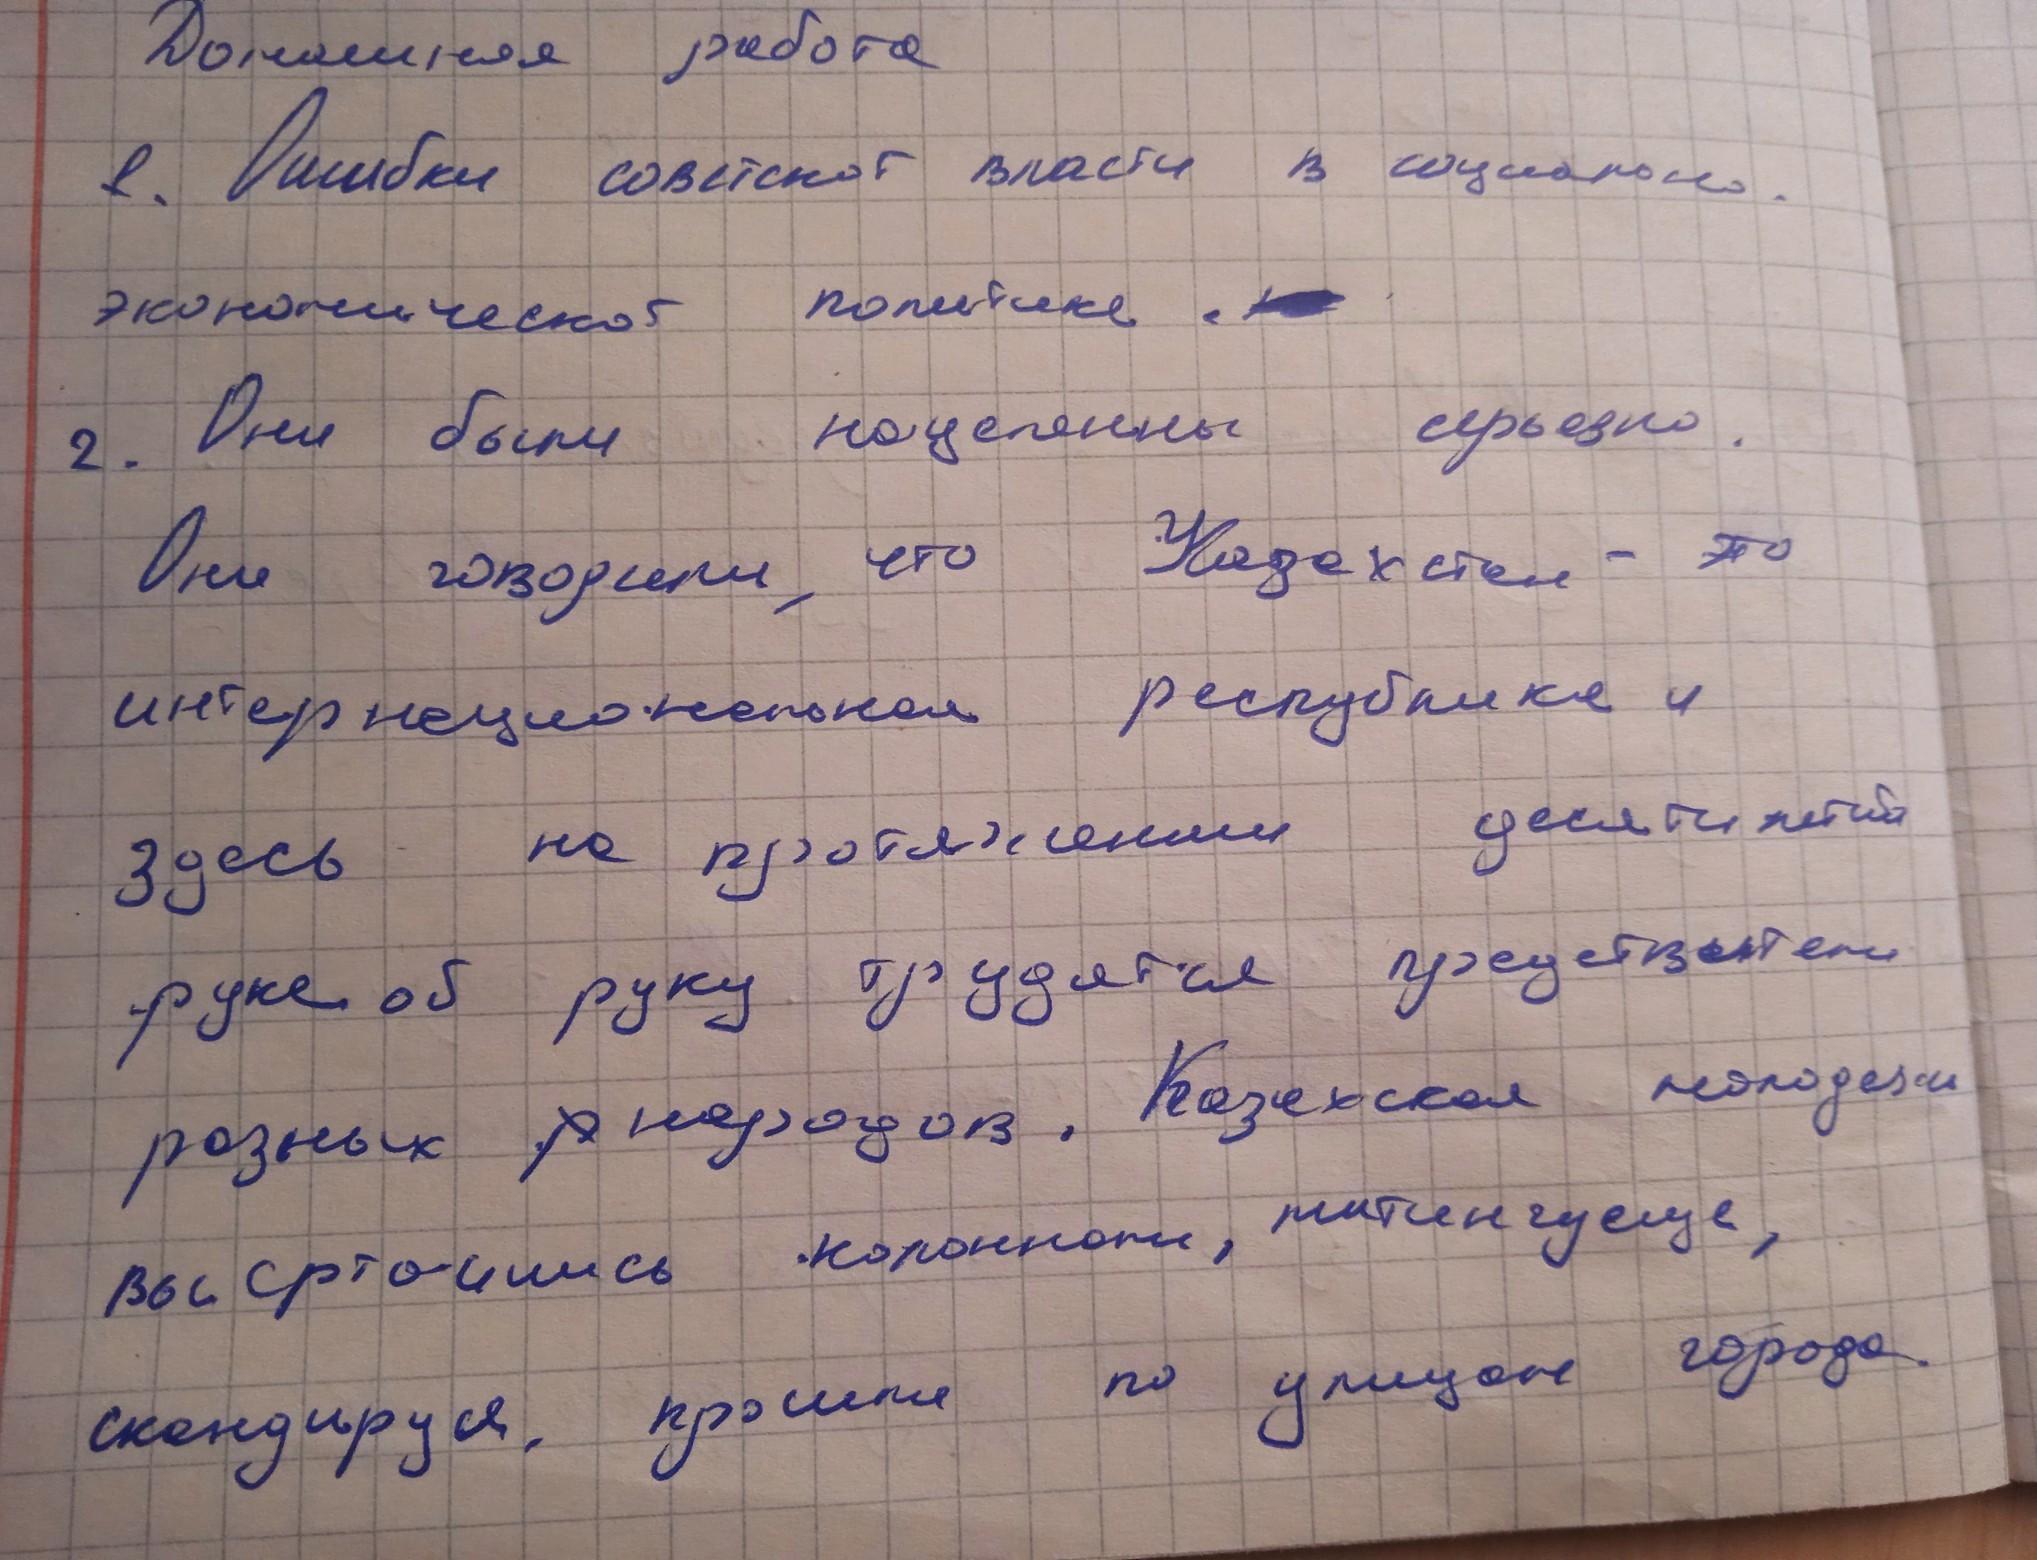 Домашняя работа
1. Ошибки советской власти в социально.
экономической политике.
2. Они были нацеленны серьезно.
Они говорили, что Казахстан - это
интернациональная республика и
здесь на протяжении десятилетий
рука об руку трудятся представители
разных народов. Казахская молодежь
выстроились колоннами, митингуеще,
скандируя, прошли по улицам города.